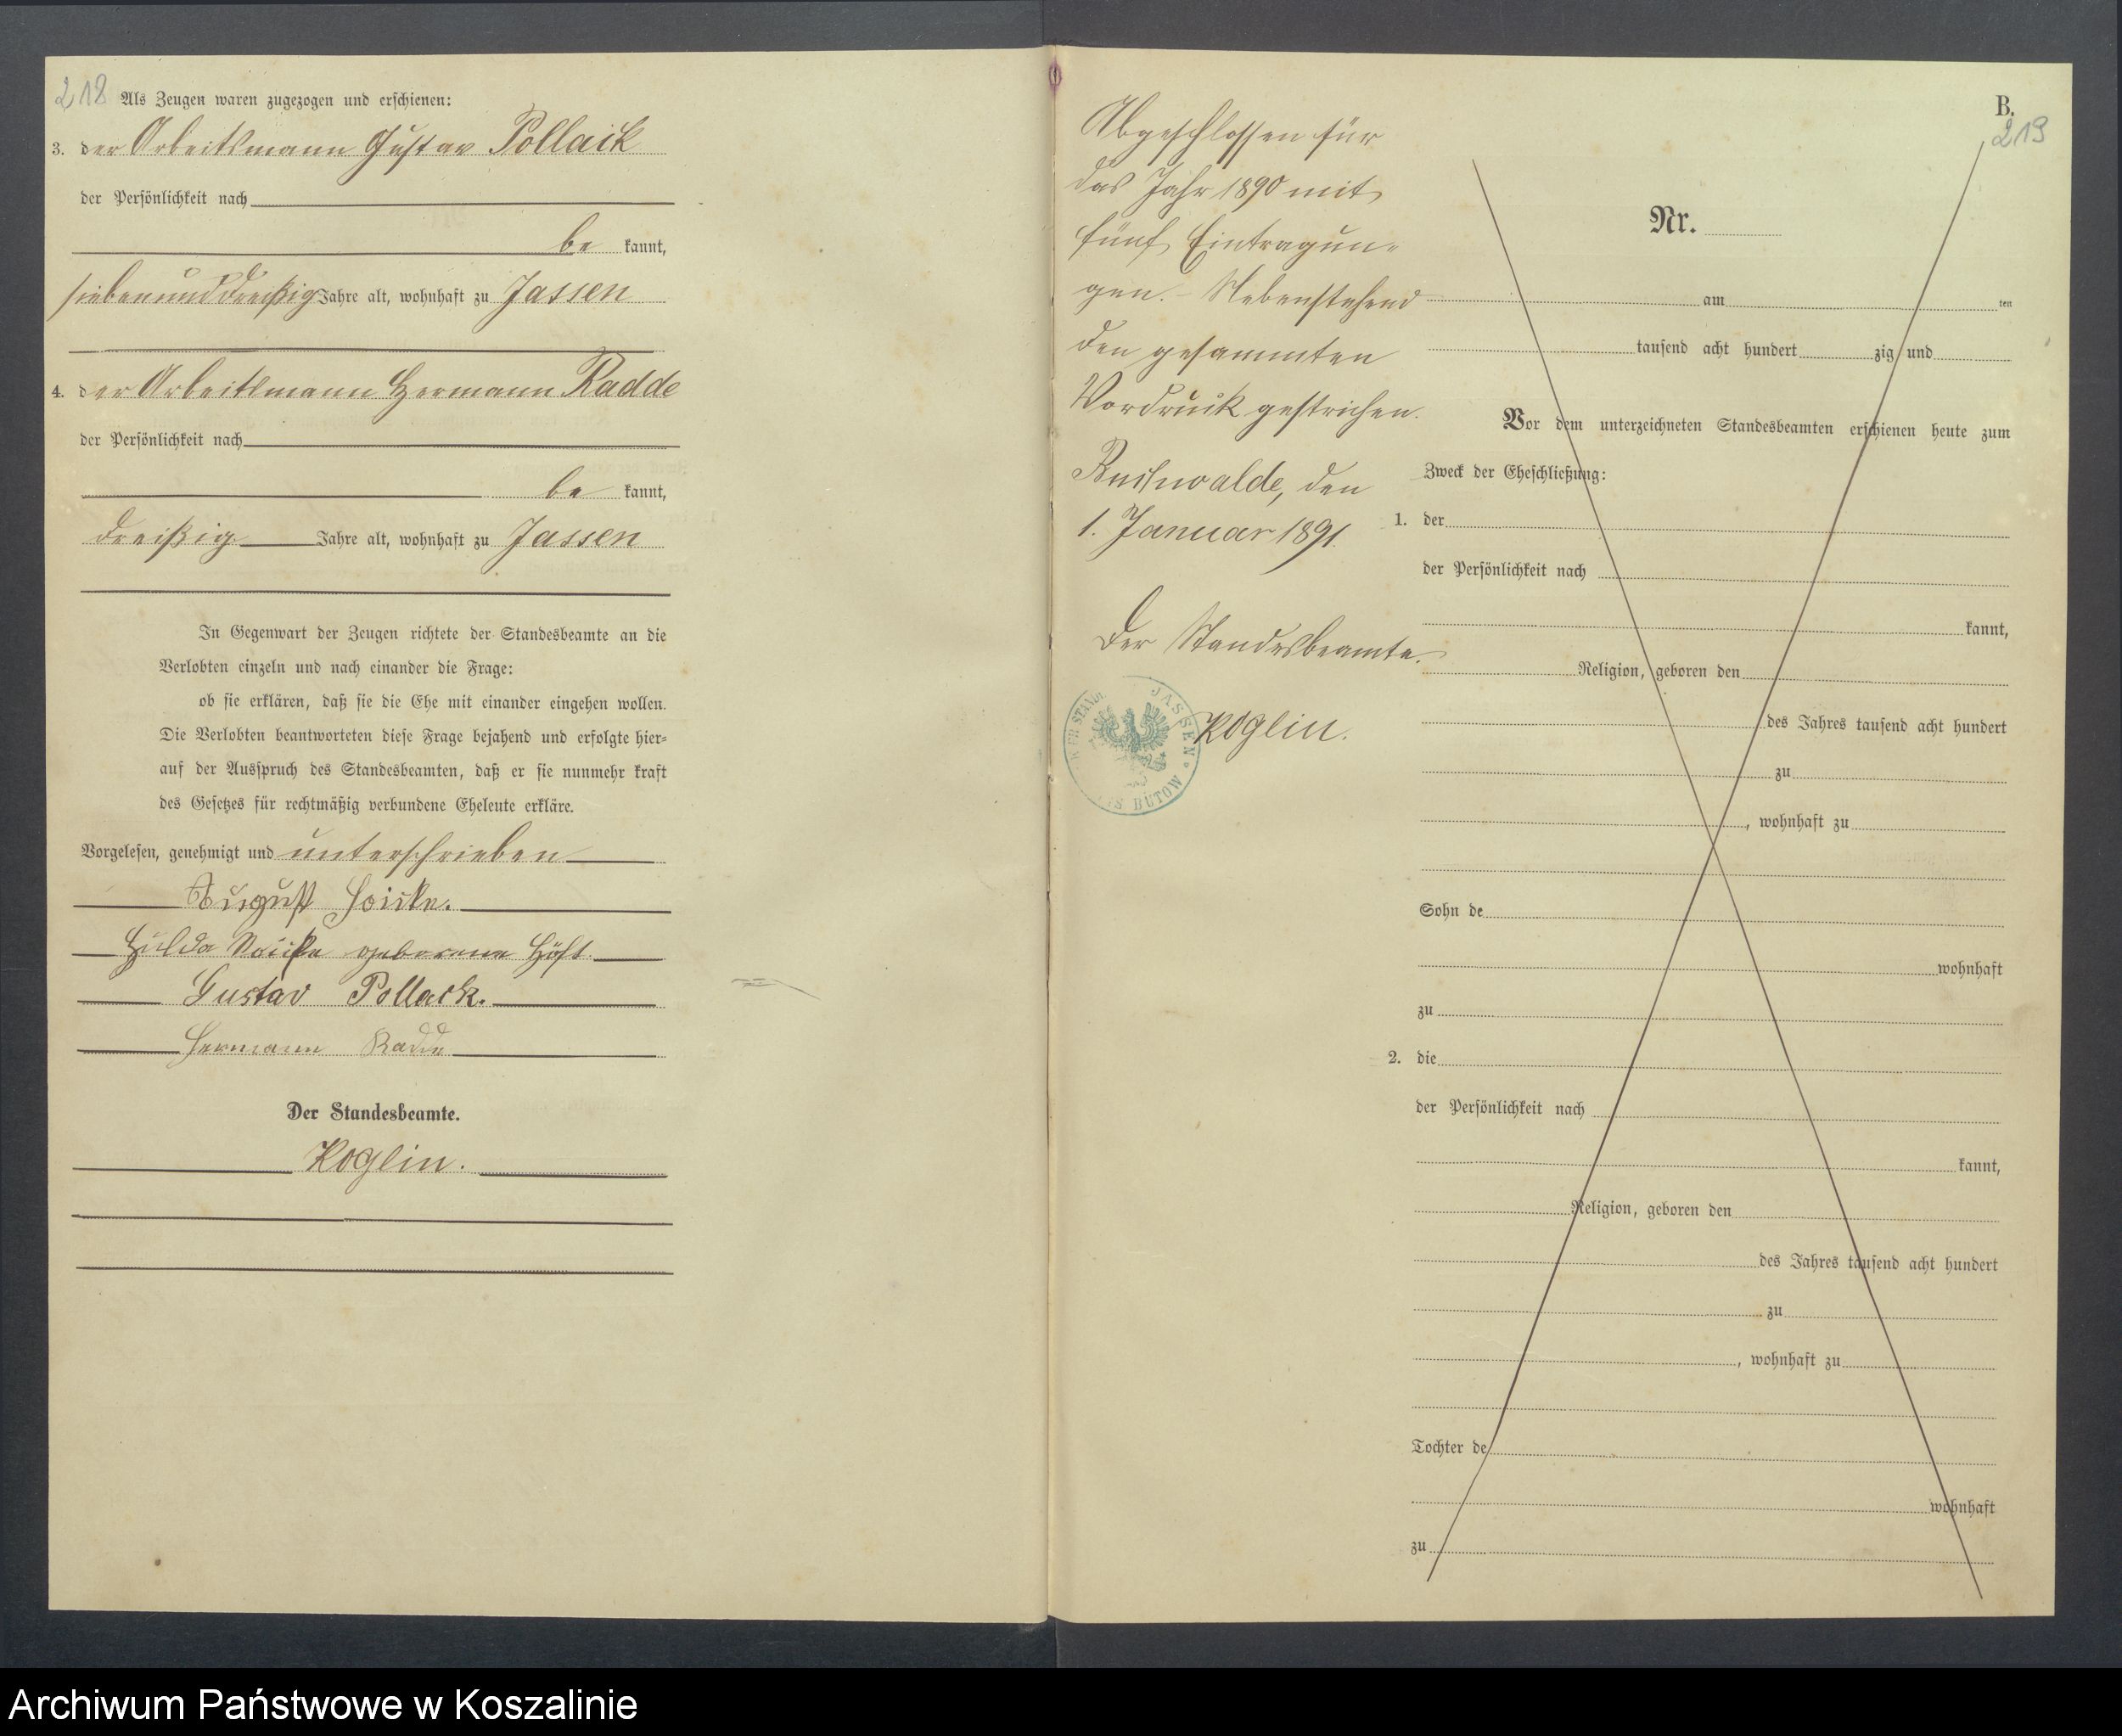 218
Als Zeugen waren zugezogen und erschienen:
3. der Arbeitsmann Gustav Pollack
der Persönlichkeit nach
be kannt,
siebenunddreißig Jahre alt, wohnhaft zu Jassen
4. der Arbeitsmann Hermann Radde
der Persönlichkeit nach
be kannt,
dreißig Jahre alt, wohnhaft zu Jassen
In Gegenwart der Zeugen richtete der Standesbeamte an die
Verlobten einzeln und nach einander die Frage:
ob sie erklären, daß sie die Ehe mit einander eingehen wollen.
Die Verlobten beantworteten diese Frage bejahend und erfolgte hier-
auf der Ausspruch des Standesbeamten, daß er sie nunmehr kraft
des Gesetzes für rechtmäßig verbundene Eheleute erkläre.
Vorgelesen, genehmigt und unterschrieben
August
Hulda geborene Höft.
Gustav Pollack.
Hermann Radde
Der Standesbeamte.
Koglin.
Abgeschlossen für
das Jahr 1890 mit
fünf Eintragun-
gen. - Nebenstehend
den gesammten
Vordruck gestrichen.
den
1. Januar 1891.
Der Standesbeamte.
Koglin.
JASSEN
BÜTOW
B.
219
Nr.
am ten
tausend acht hundert zig und
Vor dem unterzeichneten Standesbeamten erschienen heute zum
Zweck der Eheschließung:
1. der
der Persönlichkeit nach
kannt,
Religion, geboren den
des Jahres tausend acht hundert
zu
, wohnhaft zu
Sohn de
wohnhaft
zu
2. die
der Persönlichkeit nach
kannt,
Religion, geboren den
des Jahres tausend acht hundert
zu
, wohnhaft zu
Tochter de
wohnhaft
zu
Archiwum Państwowe w Koszalinie